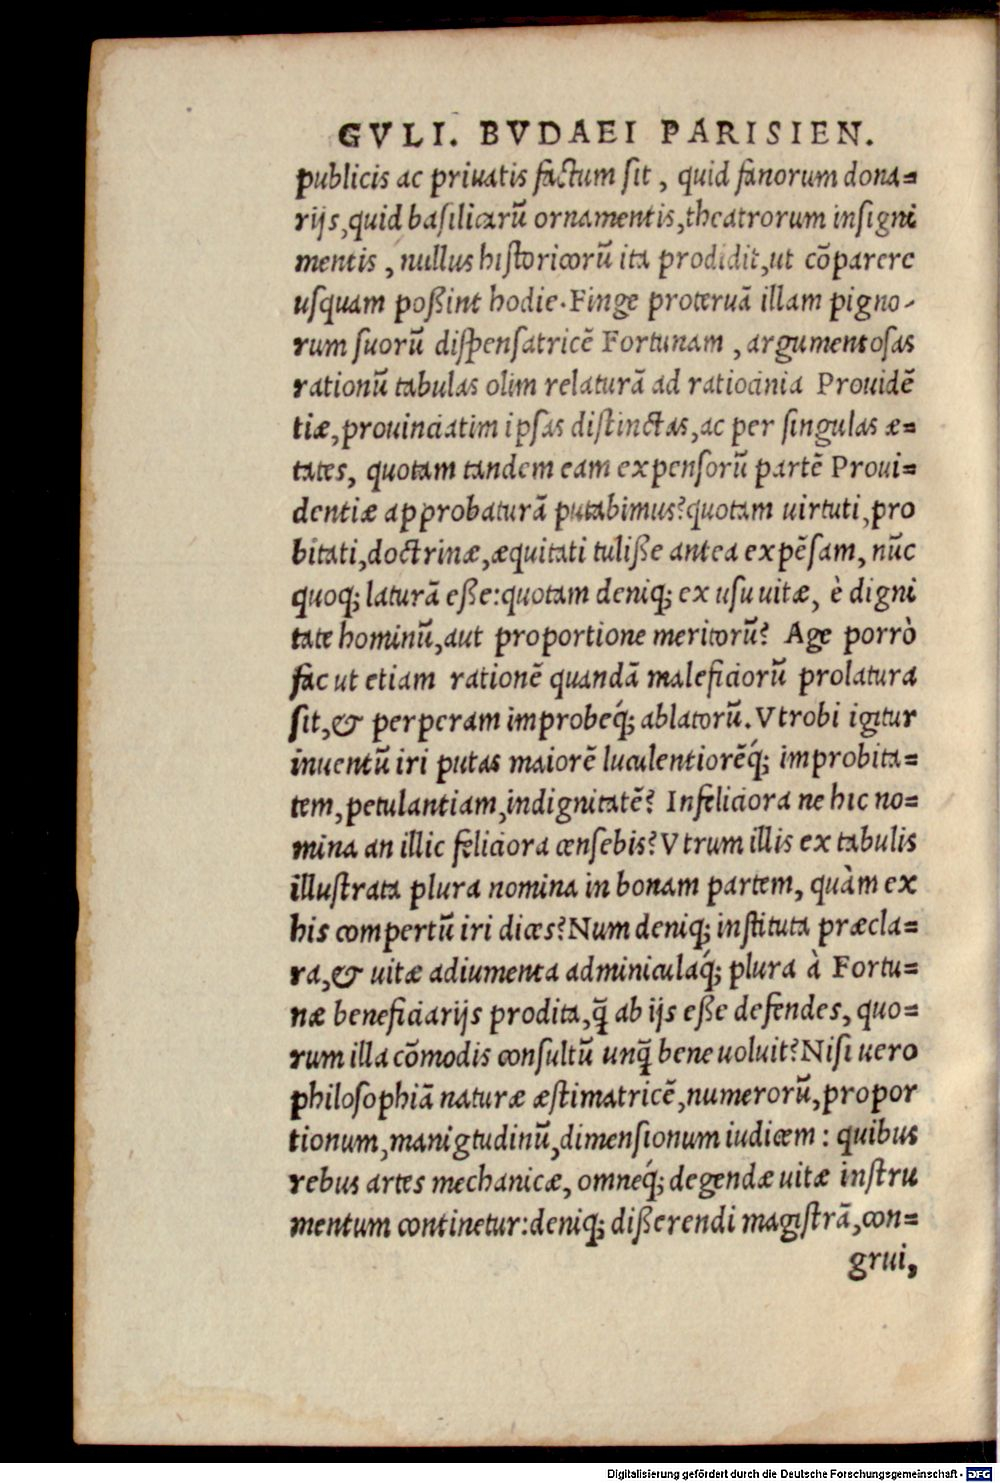 GVLI. BVDAEI PARISIEN.
publicis ac priuatis factum sit, quid fanorum dona=
rijs, quid basilicarũ ornamentis, theatrorum insigni
mentis, nullus historicorũ ita prodidit, ut cõparere
usquam poßint hodie. Finge proteruã illam pigno-
rum suorũ dispensatricẽ Fortunam, argumentosas
rationũ tabulas olim relaturã ad ratiocinia Prouidẽ
tiæ, prouinciatim ipsas distinctas, ac per singulas æ=
tates, quotam tandem eam expensorũ partẽ Proui=
dentiæ approbaturã putabimus? quotam uirtuti, pro
bitati, doctrinæ, æquitati tuliße antea expẽsam, nũc
quoq; laturã eße: quotam deniq; ex usu uitæ, è digni
tate hominũ, aut proportione meritorũ? Age porrò
fac ut etiam rationẽ quandã maleficiorũ prolatura
sit, & perperam improbeq́; ablatorũ. Vtrobi igitur
inuentũ iri putas maiorẽ luculentiorẽq́; improbita=
tem, petulantiam, indignitatẽ? Infeliciora ne hic no=
mina an illic feliciora censebis? Vtrum illis ex tabulis
illustrata plura nomina in bonam partem, quàm ex
his compertũ iri dices? Num deniq; instituta præcla=
ra, & uitæ adiumenta adminiculaq́; plura à Fortu=
næ beneficiarijs prodita, q̃ ab ijs eße defendes, quo=
rum illa cõmodis consultũ unq̃ bene uoluit? Nisi uero
philosophiã naturæ æstimatricẽ, numerorũ, propor
tionum, manigtudinũ, dimensionum iudicem: quibus
rebus artes mechanicæ, omneq́; degendæ uitæ instru
mentum continetur: deniq; dißerendi magistrã, con=
grui,
Digitalisierung gefördert durch die Deutsche Forschungsgemeinschaft - DFG